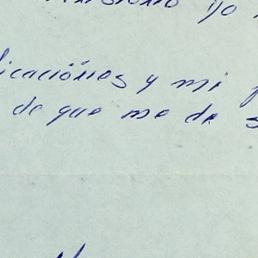 yo
icaciones y mi
de que me de s